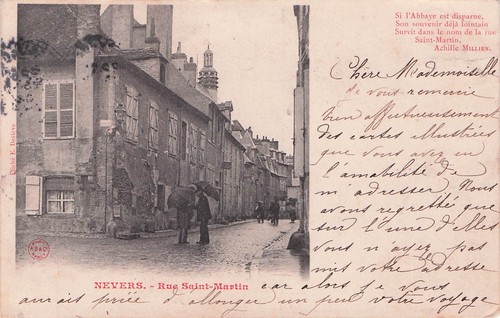 Si l'Abbaye est disparue,
Son souvenir déjà lointain
Survit dans le nom de la rue
Saint-Martin.
Achille MILLIEN.
Chère Mademoiselle
je vous remercie
bien affectueusement
des cartes illustrées
que vous avez eu
l'amabilité de
m'adresser. Nous
avons regretté que
sur l'une d'elles
vous n'ayez pas
mis votre adresse
car alors je vous
aurais priée d'allonger un peu votre voyage
NEVERS. - Rue Saint-Martin